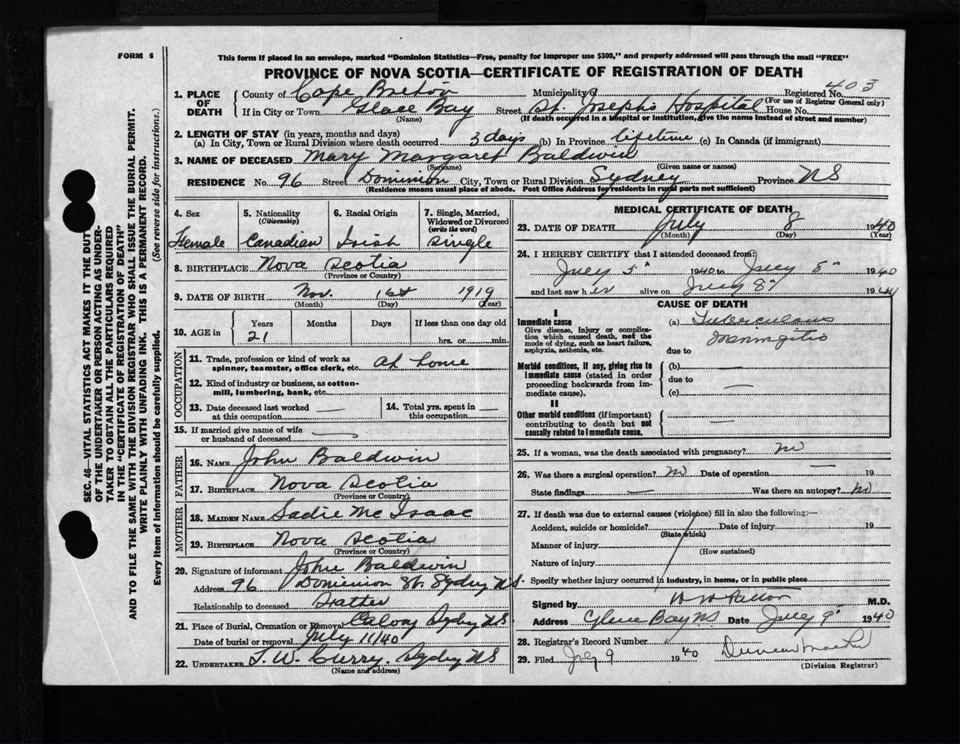 FORM 6
This form if placed in an envelope, marked "Dominion Statistics—Free, penalty for improper use $300," and properly addressed will pass through the mail "FREE"
PROVINCE OF NOVA SCOTIA—CERTIFICATE OF REGISTRATION OF DEATH
SEC. 46—VITAL STATISTICS ACT MAKES IT THE DUTY
OF THE UNDERTAKER OR PERSON ACTING AS UNDER-
TAKER TO OBTAIN ALL THE PARTICULARS REQUIRED
IN THE "CERTIFICATE OF REGISTRATION OF DEATH"
AND TO FILE THE SAME WITH THE DIVISION REGISTRAR WHO SHALL ISSUE THE BURIAL PERMIT.
WRITE PLAINLY WITH UNFADING INK. THIS IS A PERMANENT RECORD.
Every item of information should be carefully supplied. (See reverse side for instructions.)
1. PLACE OF DEATH County of Cape Breton Municipality of Registered No. 403
(For use of Registrar General only)
If in City or Town Glace Bay Street St. Joseph's Hospital House No.
(Name) (If death occurred in a hospital or institution, give the name instead of street and number)
2. LENGTH OF STAY (in years, months and days)
(a) In City, Town or Rural Division where death occurred 3 days (b) In Province lifetime (c) In Canada (if immigrant)
3. NAME OF DECEASED Mary Margaret Baldwin
(Surname) (Given name or names)
RESIDENCE No. 96 Street Dominion City, Town or Rural Division Sydney Province NS
(Residence means usual place of abode. Post Office Address for residents in rural parts not sufficient)
4. Sex 5. Nationality (Citizenship) 6. Racial Origin 7. Single, Married, Widowed or Divorced (write the word)
Female Canadian Irish Single
8. BIRTHPLACE Nova Scotia
(Province or Country)
9. DATE OF BIRTH Nov. 1st 1919
(Month) (Day) (Year)
10. AGE in Years Months Days If less than one day old
21 hrs. or min.
OCCUPATION
11. Trade, profession or kind of work as spinner, teamster, office clerk, etc. at home
12. Kind of industry or business, as cotton-mill, lumbering, bank, etc.
13. Date deceased last worked at this occupation — 14. Total yrs. spent in this occupation —
15. If married give name of wife or husband of deceased —
FATHER
16. NAME John Baldwin
17. BIRTHPLACE Nova Scotia
(Province or Country)
MOTHER
18. MAIDEN NAME Sadie McIsaac
19. BIRTHPLACE Nova Scotia
(Province or Country)
20. Signature of informant John Baldwin
Address 96 Dominion St. Sydney NS.
Relationship to deceased Father
21. Place of Burial, Cremation or Removal Calvary Sydney NS
Date of burial or removal July 11/40
22. UNDERTAKER T. W. Curry. Sydney NS
(Name and address)
MEDICAL CERTIFICATE OF DEATH
23. DATE OF DEATH July 8 1940
(Month) (Day) (Year)
24. I HEREBY CERTIFY that I attended deceased from:
July 5" 1940 to July 8" 1940
and last saw her alive on July 8" 1940
CAUSE OF DEATH
I
Immediate cause
Give disease, injury or complication which caused death, not the mode of dying, such as heart failure, asphyxia, asthenia, etc.
(a) Tuberculous meningitis
due to
Morbid conditions, if any, giving rise to immediate cause (stated in order proceeding backwards from immediate cause).
(b) —
due to —
(c)
II
Other morbid conditions (if important) contributing to death but not causally related to immediate cause. —
25. If a woman, was the death associated with pregnancy? no
26. Was there a surgical operation? no Date of operation — 19
State findings — Was there an autopsy? no
27. If death was due to external causes (violence) fill in also the following:—
Accident, suicide or homicide? Date of injury 19
(State which)
Manner of injury
(How sustained)
Nature of injury
Specify whether injury occurred in industry, in home, or in public place
Signed by M.D.
Address Glace Bay NS Date July 9" 1940
28. Registrar's Record Number
29. Filed July 9 1940
(Division Registrar)